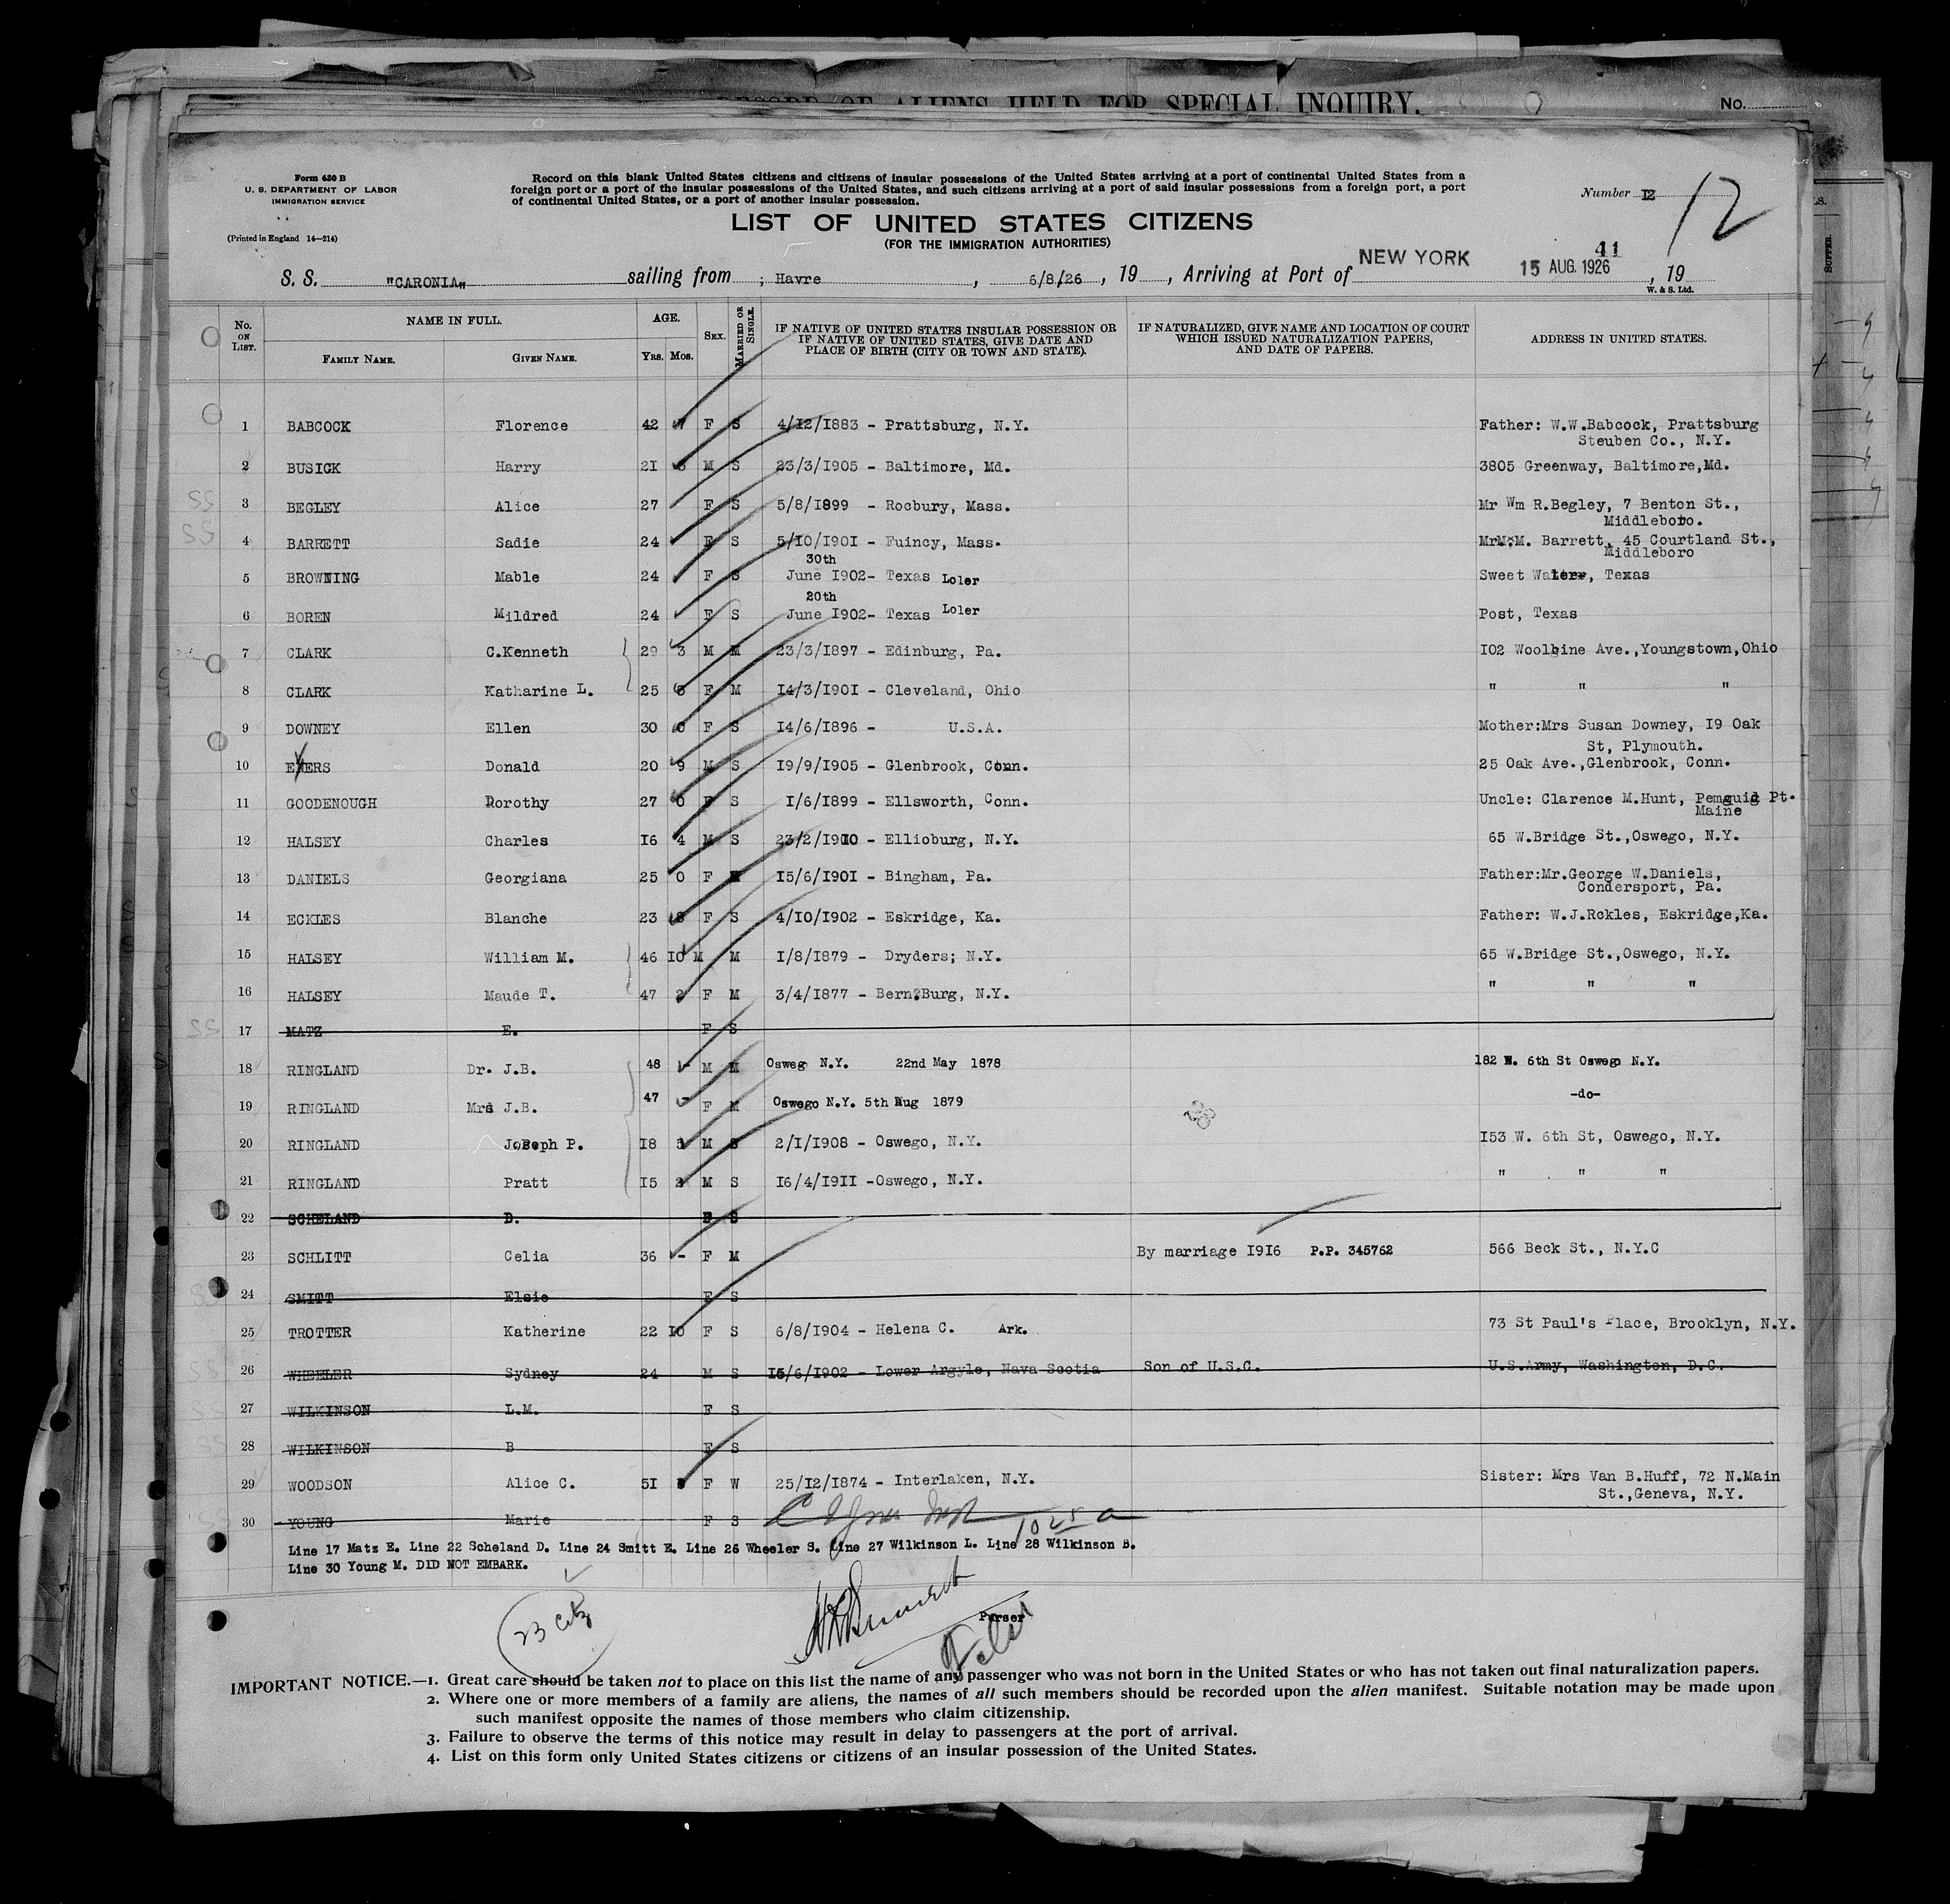 RECORD OF ALIENS HELD FOR SPECIAL INQUIRY.
No.
Form 630 B
U. S. DEPARTMENT OF LABOR
IMMIGRATION SERVICE
(Printed in England 14—214)
Record on this blank United States citizens and citizens of insular possessions of the United States arriving at a port of continental United States from a
foreign port or a port of the insular possessions of the United States, and such citizens arriving at a port of said insular possessions from a foreign port, a port
of continental United States, or a port of another insular possession.
Number 12
12
LIST OF UNITED STATES CITIZENS
(FOR THE IMMIGRATION AUTHORITIES)
41
S. S. "CARONIA" sailing from ; Havre , 6/8/26 , 19 , Arriving at Port of NEW YORK 15 AUG. 1926 , 19
W. & S. Ltd.
No. ON LIST. NAME IN FULL. FAMILY NAME. GIVEN NAME. AGE. Yrs. Mos. SEX. MARRIED OR SINGLE. IF NATIVE OF UNITED STATES INSULAR POSSESSION OR IF NATIVE OF UNITED STATES, GIVE DATE AND PLACE OF BIRTH (CITY OR TOWN AND STATE). IF NATURALIZED, GIVE NAME AND LOCATION OF COURT WHICH ISSUED NATURALIZATION PAPERS, AND DATE OF PAPERS. ADDRESS IN UNITED STATES.
1 BABCOCK Florence 42 F S 4/12/1883 - Prattsburg, N.Y. Father: W.W.Babcock, Prattsburg
Steuben Co., N.Y.
2 BUSICK Harry 21 M S 23/3/1905 - Baltimore, Md. 3805 Greenway, Baltimore,Md.
3 BEGLEY Alice 27 F S 5/8/1899 - Rocbury, Mass. Mr Wm R.Begley, 7 Benton St.,
Middleboro.
4 BARRETT Sadie 24 F S 5/10/1901 - Fuincy, Mass. Mr M.M. Barrett, 45 Courtland St.,
Middleboro
30th
5 BROWNING Mable 24 F S June 1902- Texas Loler Sweet Water, Texas
20th
6 BOREN Mildred 24 F S June 1902- Texas Loler Post, Texas
7 CLARK C.Kenneth 29 3 M M 23/3/1897 - Edinburg, Pa. 102 Woolbine Ave.,Youngstown,Ohio
8 CLARK Katharine L. 25 F M 14/3/1901 - Cleveland, Ohio " " "
9 DOWNEY Ellen 30 F S 14/6/1896 - U.S.A. Mother:Mrs Susan Downey, 19 Oak
St, Plymouth.
10 EYERS Donald 20 9 M S 19/9/1905 - Glenbrook, Conn. 25 Oak Ave.,Glenbrook, Conn.
11 GOODENOUGH Dorothy 27 0 F S 1/6/1899 - Ellsworth, Conn. Uncle: Clarence M.Hunt, Pemquid Pt.
Maine
12 HALSEY Charles 16 4 M S 23/2/1910 - Ellioburg, N.Y. 65 W.Bridge St.,Oswego, N.Y.
13 DANIELS Georgiana 25 0 F 15/6/1901 - Bingham, Pa. Father:Mr.George W.Daniels,
Condersport, Pa.
14 ECKLES Blanche 23 F S 4/10/1902 - Eskridge, Ka. Father: W.J.Rckles, Eskridge,Ka.
15 HALSEY William M. 46 10 M M 1/8/1879 - Dryders; N.Y. 65 W.Bridge St.,Oswego, N.Y.
16 HALSEY Maude T. 47 2 F M 3/4/1877 - Bern?Burg, N.Y. " " "
17 MATZ E. F S
18 RINGLAND Dr. J.B. 48 M M Osweg N.Y. 22nd May 1878 182 W. 6th St Oswego N.Y.
19 RINGLAND Mrs J.B. 47 F M Oswego N.Y. 5th Aug 1879 -do-
20 RINGLAND Joseph P. 18 M S 2/1/1908 - Oswego, N.Y. 153 W. 6th St, Oswego, N.Y.
21 RINGLAND Pratt 15 2 M S 16/4/1911 -Oswego, N.Y. " " "
22 SCHELAND D. F S
23 SCHLITT Celia 36 - F M By marriage 1916 P.P. 345762 566 Beck St., N.Y.C
24 SMITT Elsie F S
25 TROTTER Katherine 22 10 F S 6/8/1904 - Helena C. Ark. 73 St Paul's Place, Brooklyn, N.Y.
26 WHEELER Sydney 24 M S 15/6/1902 - Lower Argyle, Nava Scotia Son of U.S.C. U.S.Army, Washington, D.C.
27 WILKINSON L.M. F S
28 WILKINSON B F S
29 WOODSON Alice C. 51 F W 25/12/1874 - Interlaken, N.Y. Sister: Mrs Van B.Huff, 72 N.Main
St.,Geneva, N.Y.
30 YOUNG Marie F S
Line 17 Matz E. Line 22 Scheland D. Line 24 Smitt E. Line 26 Wheeler S. Line 27 Wilkinson L. Line 28 Wilkinson B.
Line 30 Young M. DID NOT EMBARK.
Purser
IMPORTANT NOTICE.—1. Great care should be taken not to place on this list the name of any passenger who was not born in the United States or who has not taken out final naturalization papers.
2. Where one or more members of a family are aliens, the names of all such members should be recorded upon the alien manifest. Suitable notation may be made upon
such manifest opposite the names of those members who claim citizenship.
3. Failure to observe the terms of this notice may result in delay to passengers at the port of arrival.
4. List on this form only United States citizens or citizens of an insular possession of the United States.